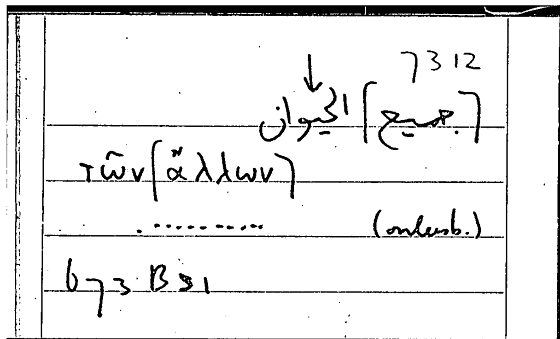 7312
↓
⌈جميع⌉ الحيوان
τῶν ⌈ἄλλων⌉
.......... (onleesb.)
673 B31